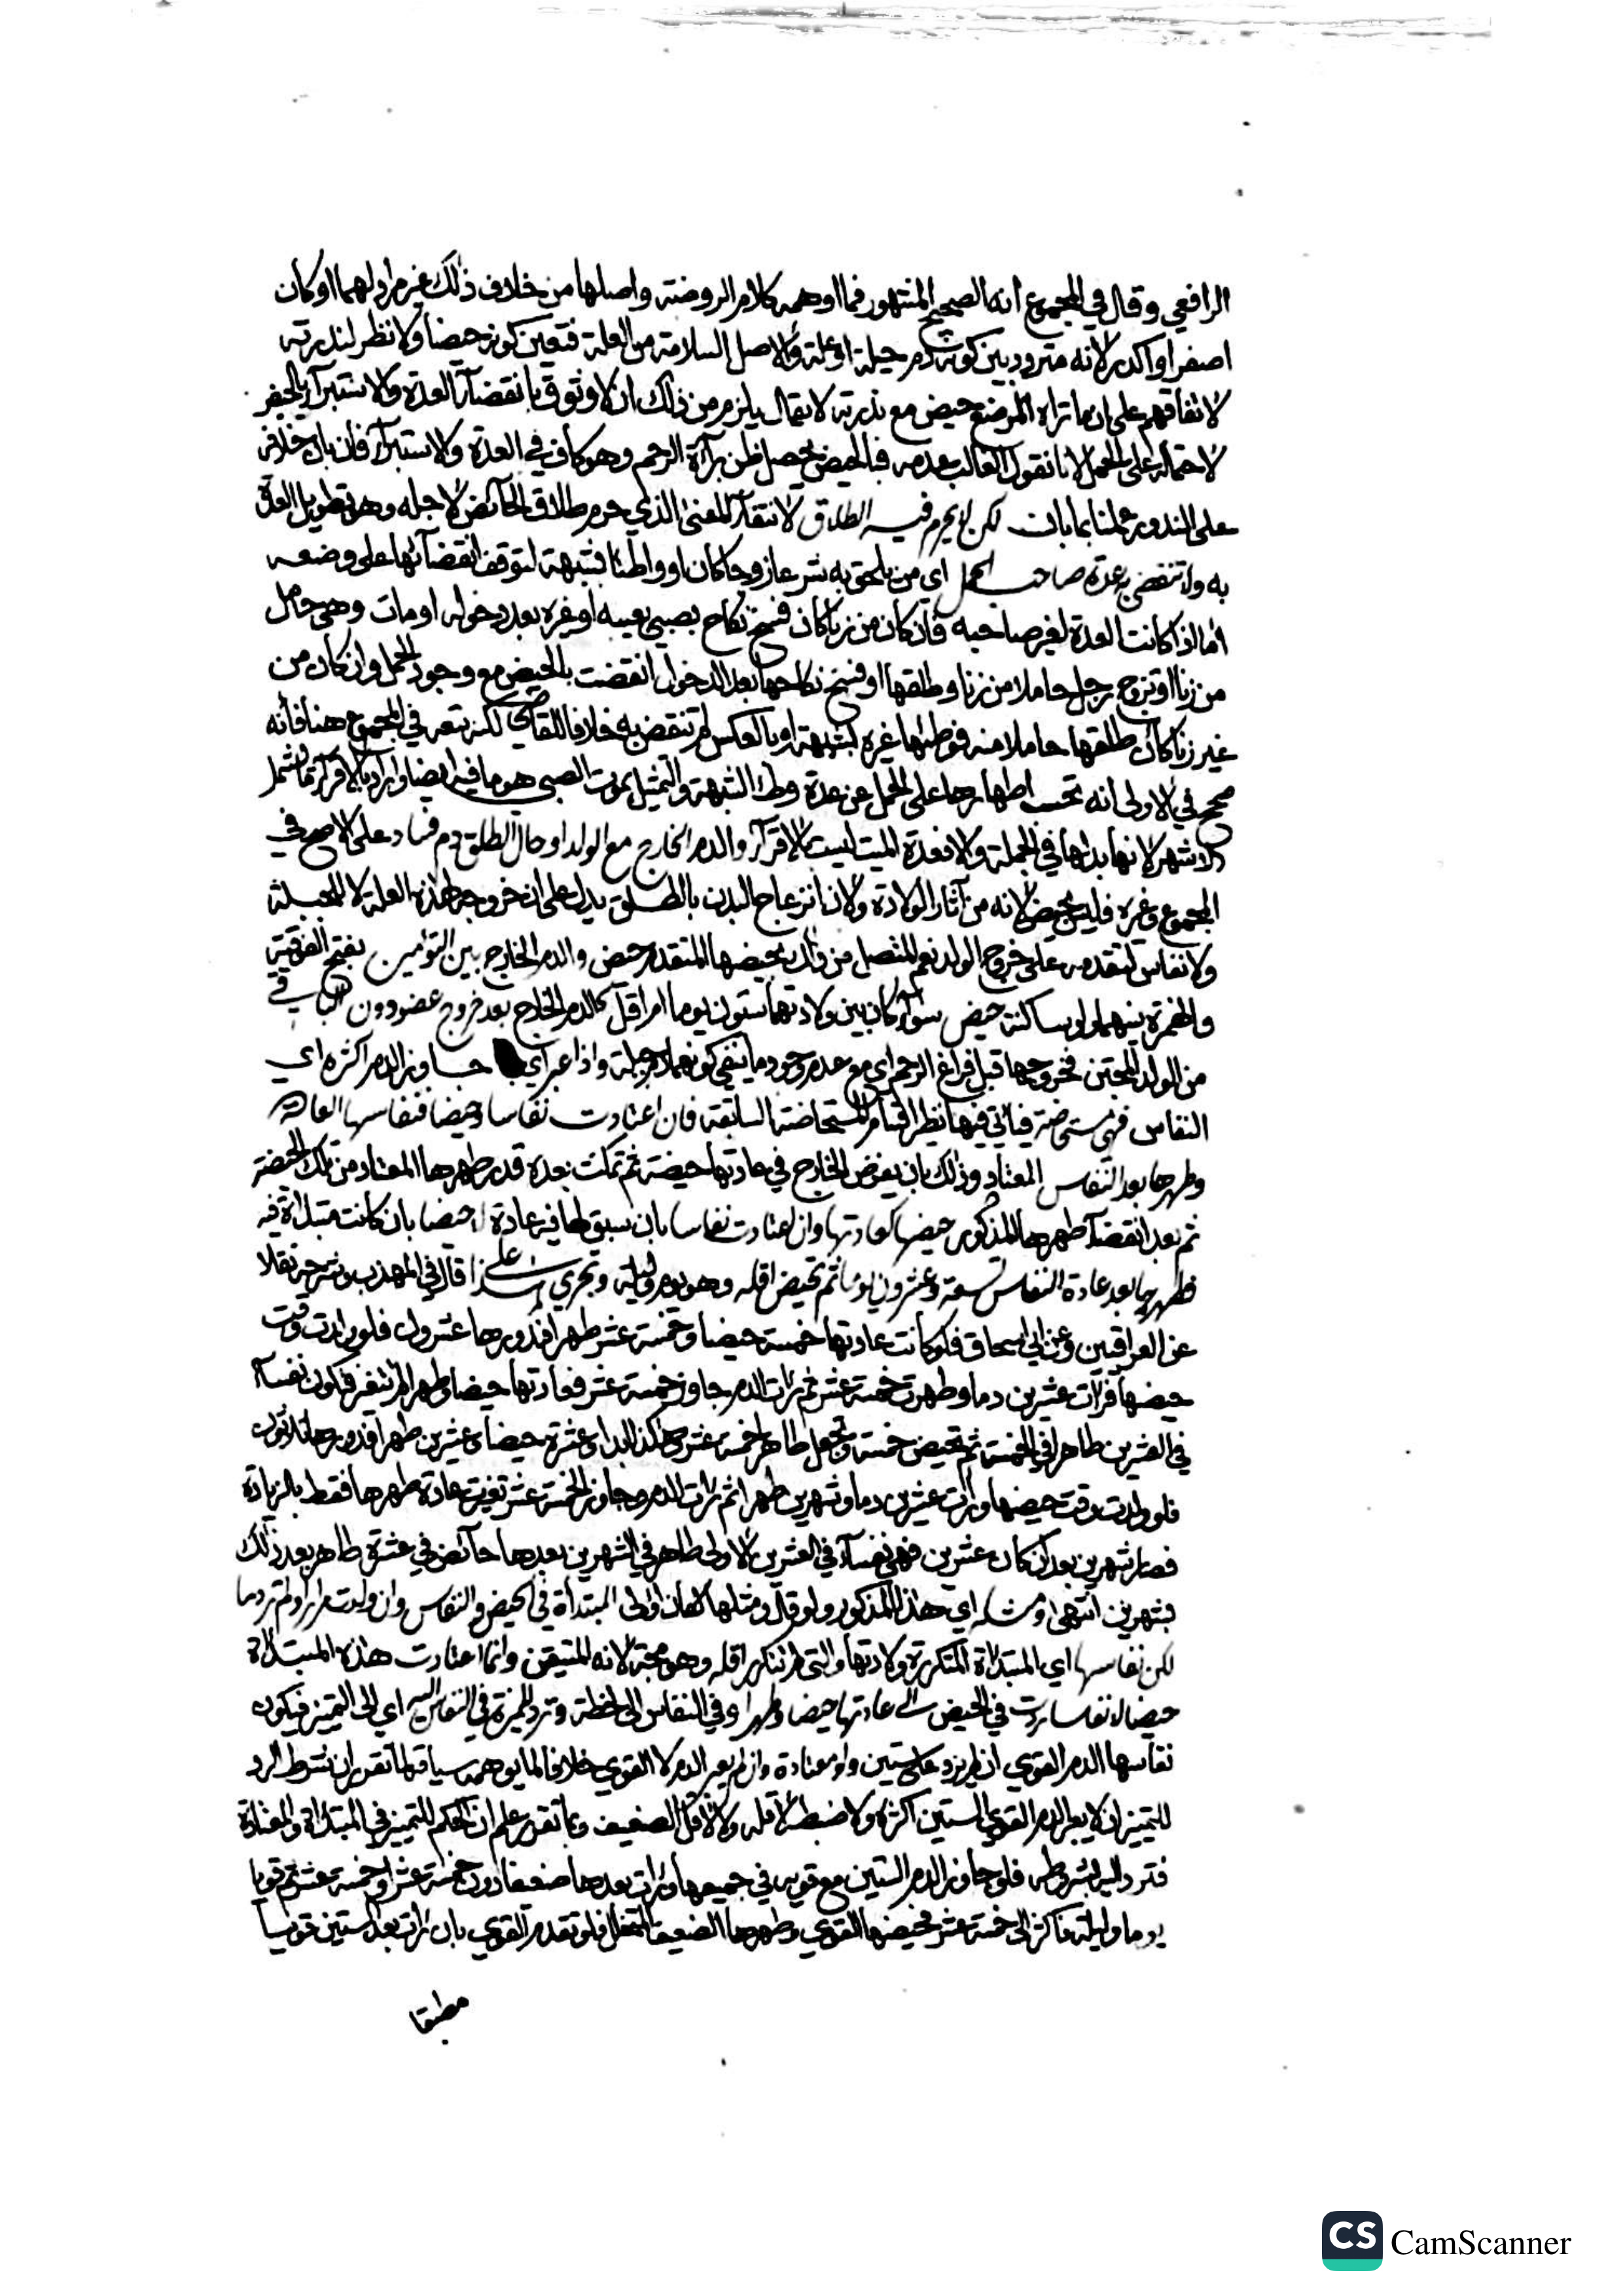 الرافعي وقال في المجموع انه الصحيح المشهور فما اوهمه كلام الروضة واصلها من خلاف ذلك غير مراد لهما او كان
اصفر او اكدر لانه متردد بين كونه دم جبلة او علة والاصل السلامة من العلة فتعين كونه حيضا ولا نظر لندرته
لاتفاقهم على ان ما تراه المرضع حيض مع ندرته لا يقال يلزم من ذلك ان لا وثوق بانقضآء العدة والاستبرآء بالحيض
لاحتماله على الحمل لانا نقول الغالب عدمه فبالحيض يحصل ظن برآءة الرحم وهو كاف في العدة والاستبرآء فان بان خلافه
على الندور عملنا بما بان لكن لا يحرم فيه الطلاق لانتفآء المعنى الذي حرم طلاق الحائض لاجله وهو تطويل العدة
به ولا تنقضي به عدة صاحب الحمل اي من يلحق به شرعا زوجا كان او واطئا بشبهة لتوقف انقضآئها على وضعه
اما اذا كانت العدة لغير صاحبه فان كان من زنا كان فسخ نكاح بصبي بعيبه او غيره بعد دخوله او مات وهي حامل
من زنا او تزوج رجل حاملا من زنا وطلقها او فسخ نكاحها بعد الدخول انقضت بالحيض مع وجود الحمل وان كان من
غير زنا كان طلقها حاملا منه فوطئها غيره بشبهة او بالعكس لم تنقض به خلافا للقاضي لكنه تبعه في المجموع هنا فانه
صحح في الاولى انه تحسب اطهارها على الحمل عن عدة وطء الشبهة والتمثيل بموت الصبي هو ما فيه ايضا واراد بالاقرآء ما يشمل
الاشهر لانها بدلها في الجملة والا فعدة الميت ليست بالاقرآء والدم الخارج مع الولد او حال الطلق دم فساد على الاصح في
المجموع وغيره فليس بحيض لانه من آثار الولادة ولان انزعاج البدن بالطلق يدل على ان خروجه لهذه العلة لا للجبلة
ولا نفاس لتقدمه على خروج الولد نعم المتصل من ذلك بحيضها المتقدم حيض والدم الخارج بين التؤمين بفتح الفوقية
والهمزة بينهما واو ساكنة حيض سوآء كان بين ولادتهما ستون يوما ام اقل كالدم الخارج بعد خروج عضو دون الباقي
من الولد المجتن فخروجها قبل فراغ الرحم اي مع عدم وجود ما ينفي كونهما دم جبلة واذا عبر اي جاوز الدم اكثره اي
النفاس فهي مستحاضة فيأتي فيها نظير اقسام المستحاضة السابقة فان اعتادت نفاسا وحيضا فنفاسها العادة
وطهرها بعد النفاس المعتاد وذلك بان يفرض الخارج في عادتها حيضة ثم تمكث بعده قدر طهرها المعتاد من تلك الحيضة
ثم بعد انقضآء طهرها المذكور حيضها كعادتها وان اعتادت نفاسا بان سبق لها فيه عادة لا حيضا بان كانت مبتدأة فيه
فطهرها بعد عادة النفاس تسعة وعشرون يوما ثم تحيض اقله وهو يوم وليلة وتجري على هذا قال في المهذب وشرحه نقلا
عن العراقيين وعن ابي اسحاق فلو كانت عادتها خمسة حيضا وخمسة عشر طهرا فدورها عشرون فلو ولدت وقت
حيضها فرأت عشرين دما وطهرت خمسة عشر ثم رأت الدم وجاوز خمسة عشر فعادتها حيضا وطهرا لم تتغير فتكون نفسآء
في العشرين طاهرا في الخمسة ثم تحيض خمسة وتجعل طاهرا خمسة عشر وهكذا ابدا او عشرة حيضا وعشرين طهرا فدورها ثلاثون
فلو ولدت وقت حيضها ورأت عشرين دما وشهرين طهرا ثم رأت الدم وجاوز الخمسة عشر تغيرت عادة طهرها فقط بالزيادة
فصار شهرين بعد ان كان عشرين فهي نفسآء في العشرين الاولى طاهر في الشهرين بعدها حآئض في عشرة طاهر بعد ذلك
شهرين انتهى ومثله اي هذا المذكور ولو قال ومثلها كان اولى المبتدأة في الحيض والنفاس وان ولدت مرارا ولم تر دما
لكن نفاسها اي المبتدأة المتكررة ولادتها والتي لم تتكرر اقله وهو مجة لانه المتيقن وانما اعتادت هذه المبتدأة
حيضا لا نفاسا ردت في الحيض الى عادتها حيضا وطهرا وفي النفاس الى لحظة وترد المميزة في النفاس اليه اي الى التمييز فيكون
نفاسها الدم القوي ان لم يزد على ستين ولو معتادة وان لم يعبر الدم لا القوي خلافا لما يوهمه سياقه لما تقرر ان شرط الرد
للتمييز ان لا يعبر الدم القوي الستين اكثره ولا ضبط لاقله ولا لاقل الضعيف وبما تقرر علم ان الحكم للتمييز في المبتدأة والمعتادة
فترد اليه بشروطه فلو جاوز الدم الستين مع قوته في جميعها ورأت بعدها ضعيفا دون خمسة عشر او خمسة عشر ثم قويا
يوما وليلة فاكثر الى خمسة عشر فحيضها القوي وطهرها الضعيف المتخلل فلو تقدم القوي بان رأت بعد الستين قويا
مطبقا
CS CamScanner